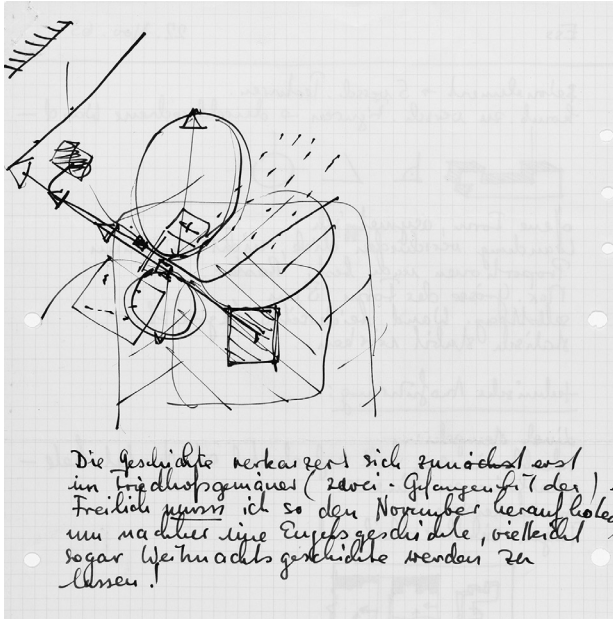 Die Geschichte verkarzert sich zunächst erst
im Friedhofsgemäuer (zwei - Gefangenbilder) -
Freilich muss ich so den November heraufholen
um nachher eine Engelsgeschichte, vielleicht
sogar Weihnachtsgeschichte werden zu
lassen!